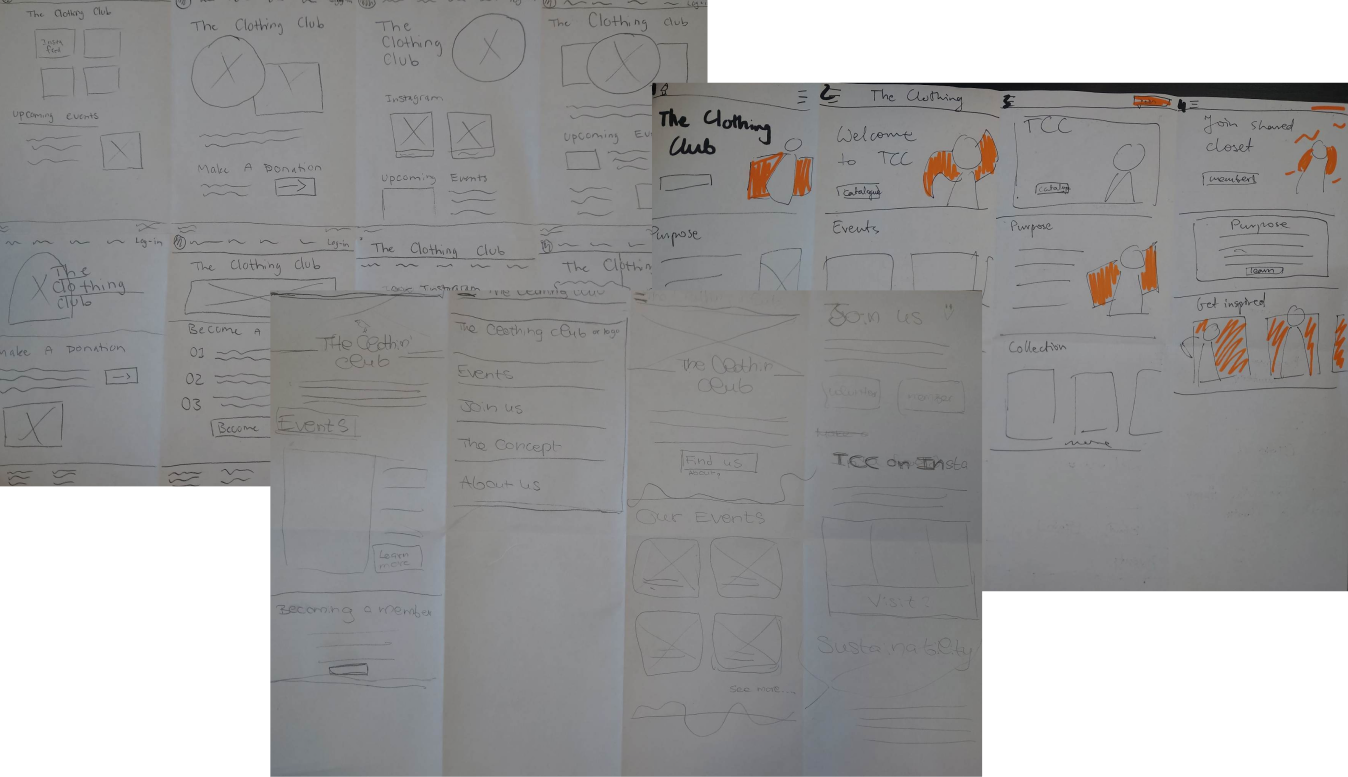 The Clothing Club
Upcoming Events
The Clothing Club
Make A Donation
The
Clothing
Club
Instagram
Upcoming Events
Log-in
The Clothing Club
Upcoming Eve
Log-in
The
Clothing
Club
Make A Donation
Log-in
The Clothing Club
Become A
01
02
03
Become
The Clothing Club
The Clothin
1
The Clothing
Club
Purpose
2
The Clothing
Welcome
to TCC
Catalogue
Events
3
TCC
Catalog
Purpose
Collection
4
Join shared
closet
members
Purpose
learn
Get inspired
The Clothin
Club
Events
Learn
more
Becoming a member
The Clothing Club or logo
Events
Join us
The Concept
About us
The Clothin
Club
Find us
Our Events
See more...
Join us
member
TCC on Insta
Visit?
Sustainability